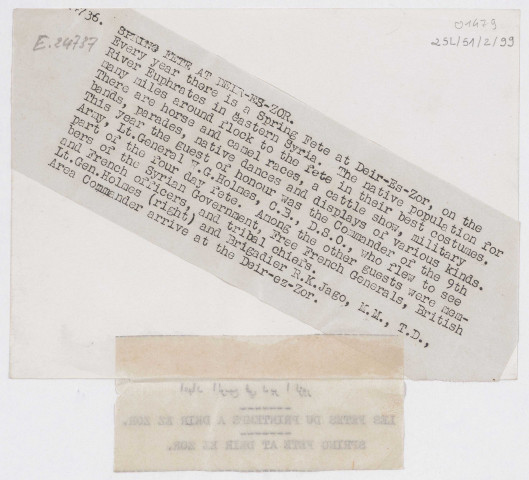 /36.
E.24737
01479
25L/51/2/99
SPRING FETE AT DEIR-ES-ZOR.
Every year there is a Spring Fete at Deir-Es-Zor, on the
River Euphrates in Eastern Syria. The native population for
many miles around flock to the fete in their best costumes.
There are horse and camel races, a cattle show, military
bands, parades, native dances and displays of various kinds.
This year the guest of honour was the Commander of the 9th
Army, Lt.General W.G.Holmes, C.B., D.S.O., who flew to see
part of the four day fete. Among the other guests were mem-
bers of the Syrian Government, Free French Generals, British
and French officers, and tribal chiefs.
Lt.Gen.Holmes (right) and Brigadier R.K.Jago, K.M., T.D.,
Area Commander arrive at the Deir-ez-Zor.
LES FETES DU PRINTEMPS A DEIR EZ ZOR.
SPRING FETE AT DEIR EZ ZOR.